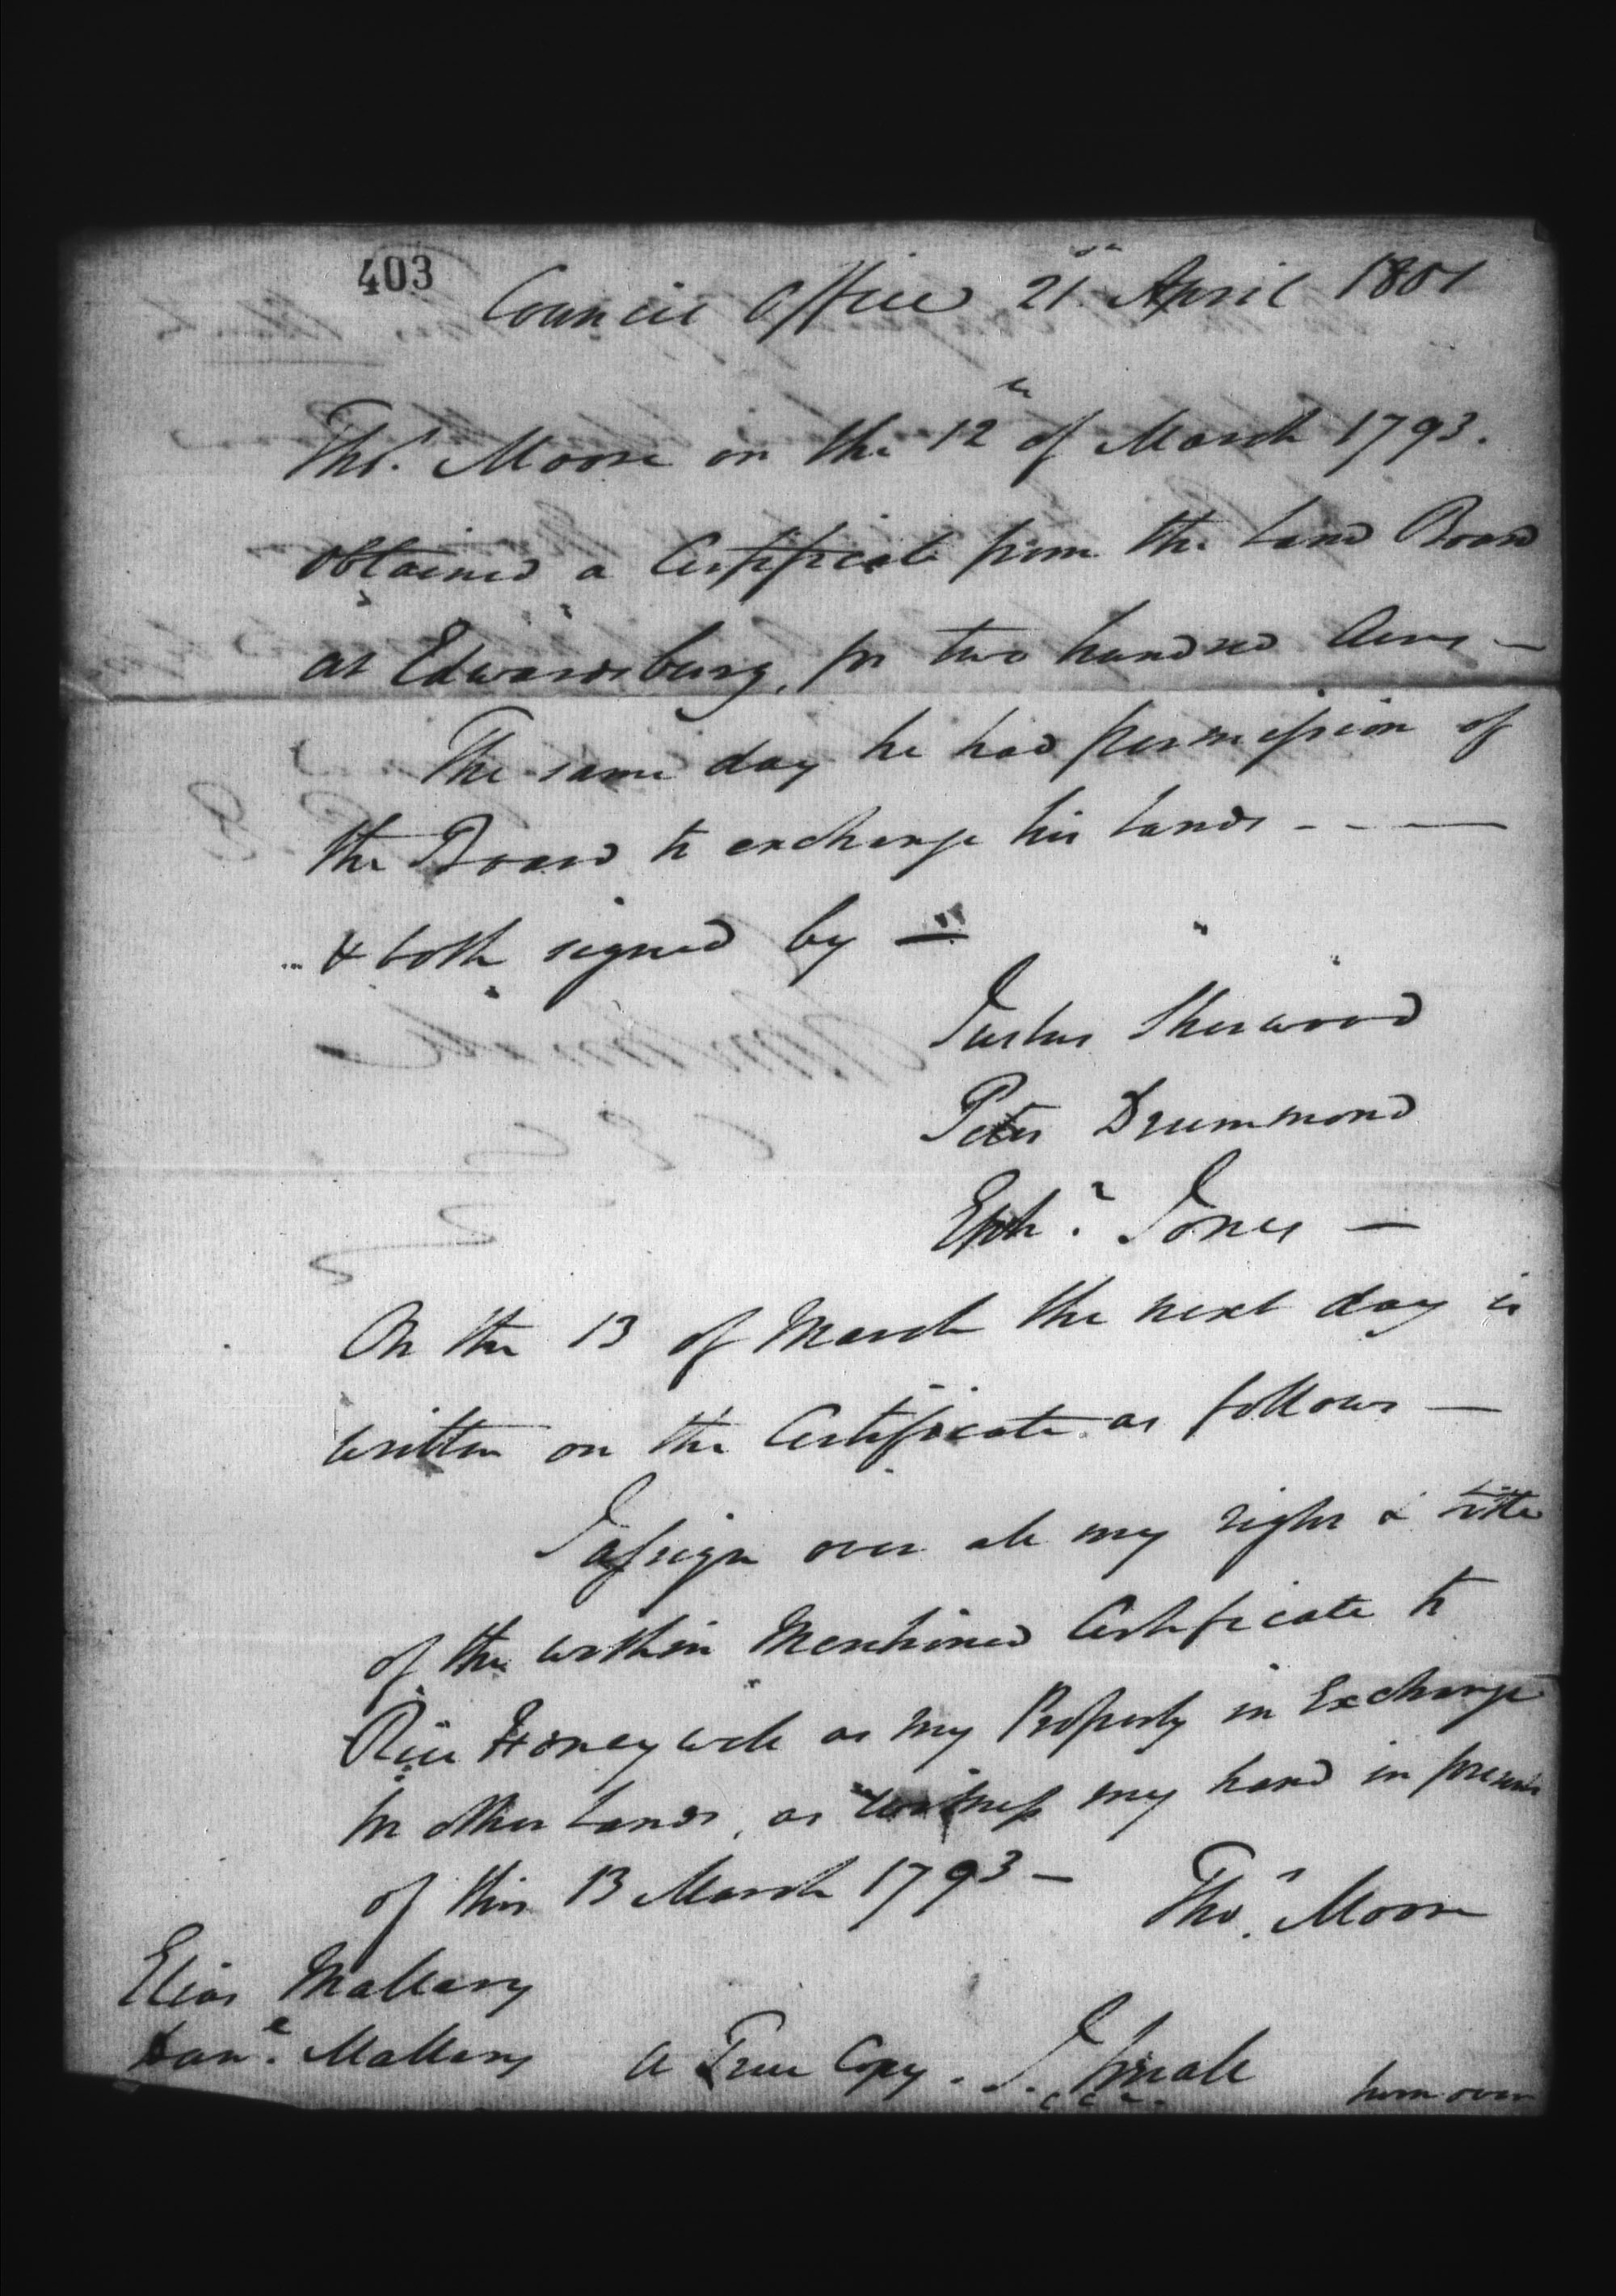 403
Council Office 21st April 1801
Thos. Moore on the 12th of March 1793.
obtained a Certificate from the Land Board
at Edwardsburg, for two hundred Acres —
The same day he had permission of
the Board to exchange his Lands - - - —
& both signed by —
Justus Sherwood
Peter Drummond
Ephm. Jones —
On the 13 of March the next day is
written on the Certificate as follows —
I assign over all my right & title
of the within Mentioned Certificate to
Rice Honeywell as my Property in Exchange
for other Lands, as witness my hand in presence
of this 13 March 1793 —
Thos. Moore
Elias Mallary
Danl. Mallary
A True Copy. J. Small
C C C.
turn over